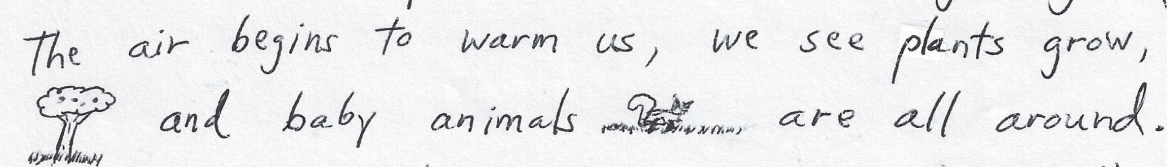 The air begins to warm us, we see plants grow,
and baby animals are all around.